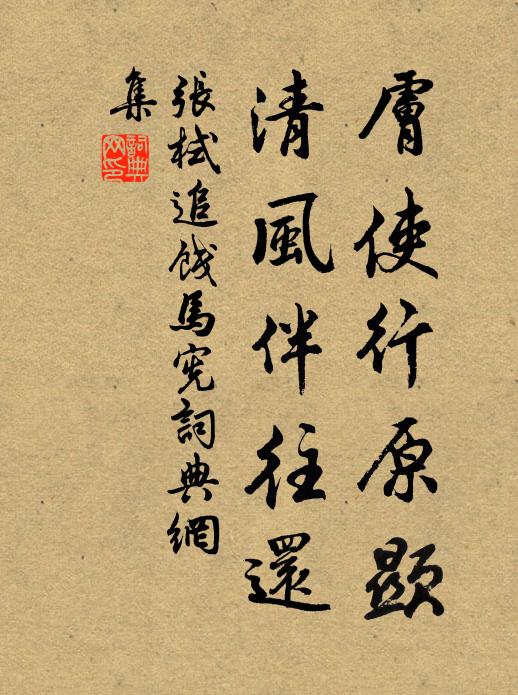 膚使行原顕
清風伴往還
張栻追餞馬宪詞典網
集
詞典
网印